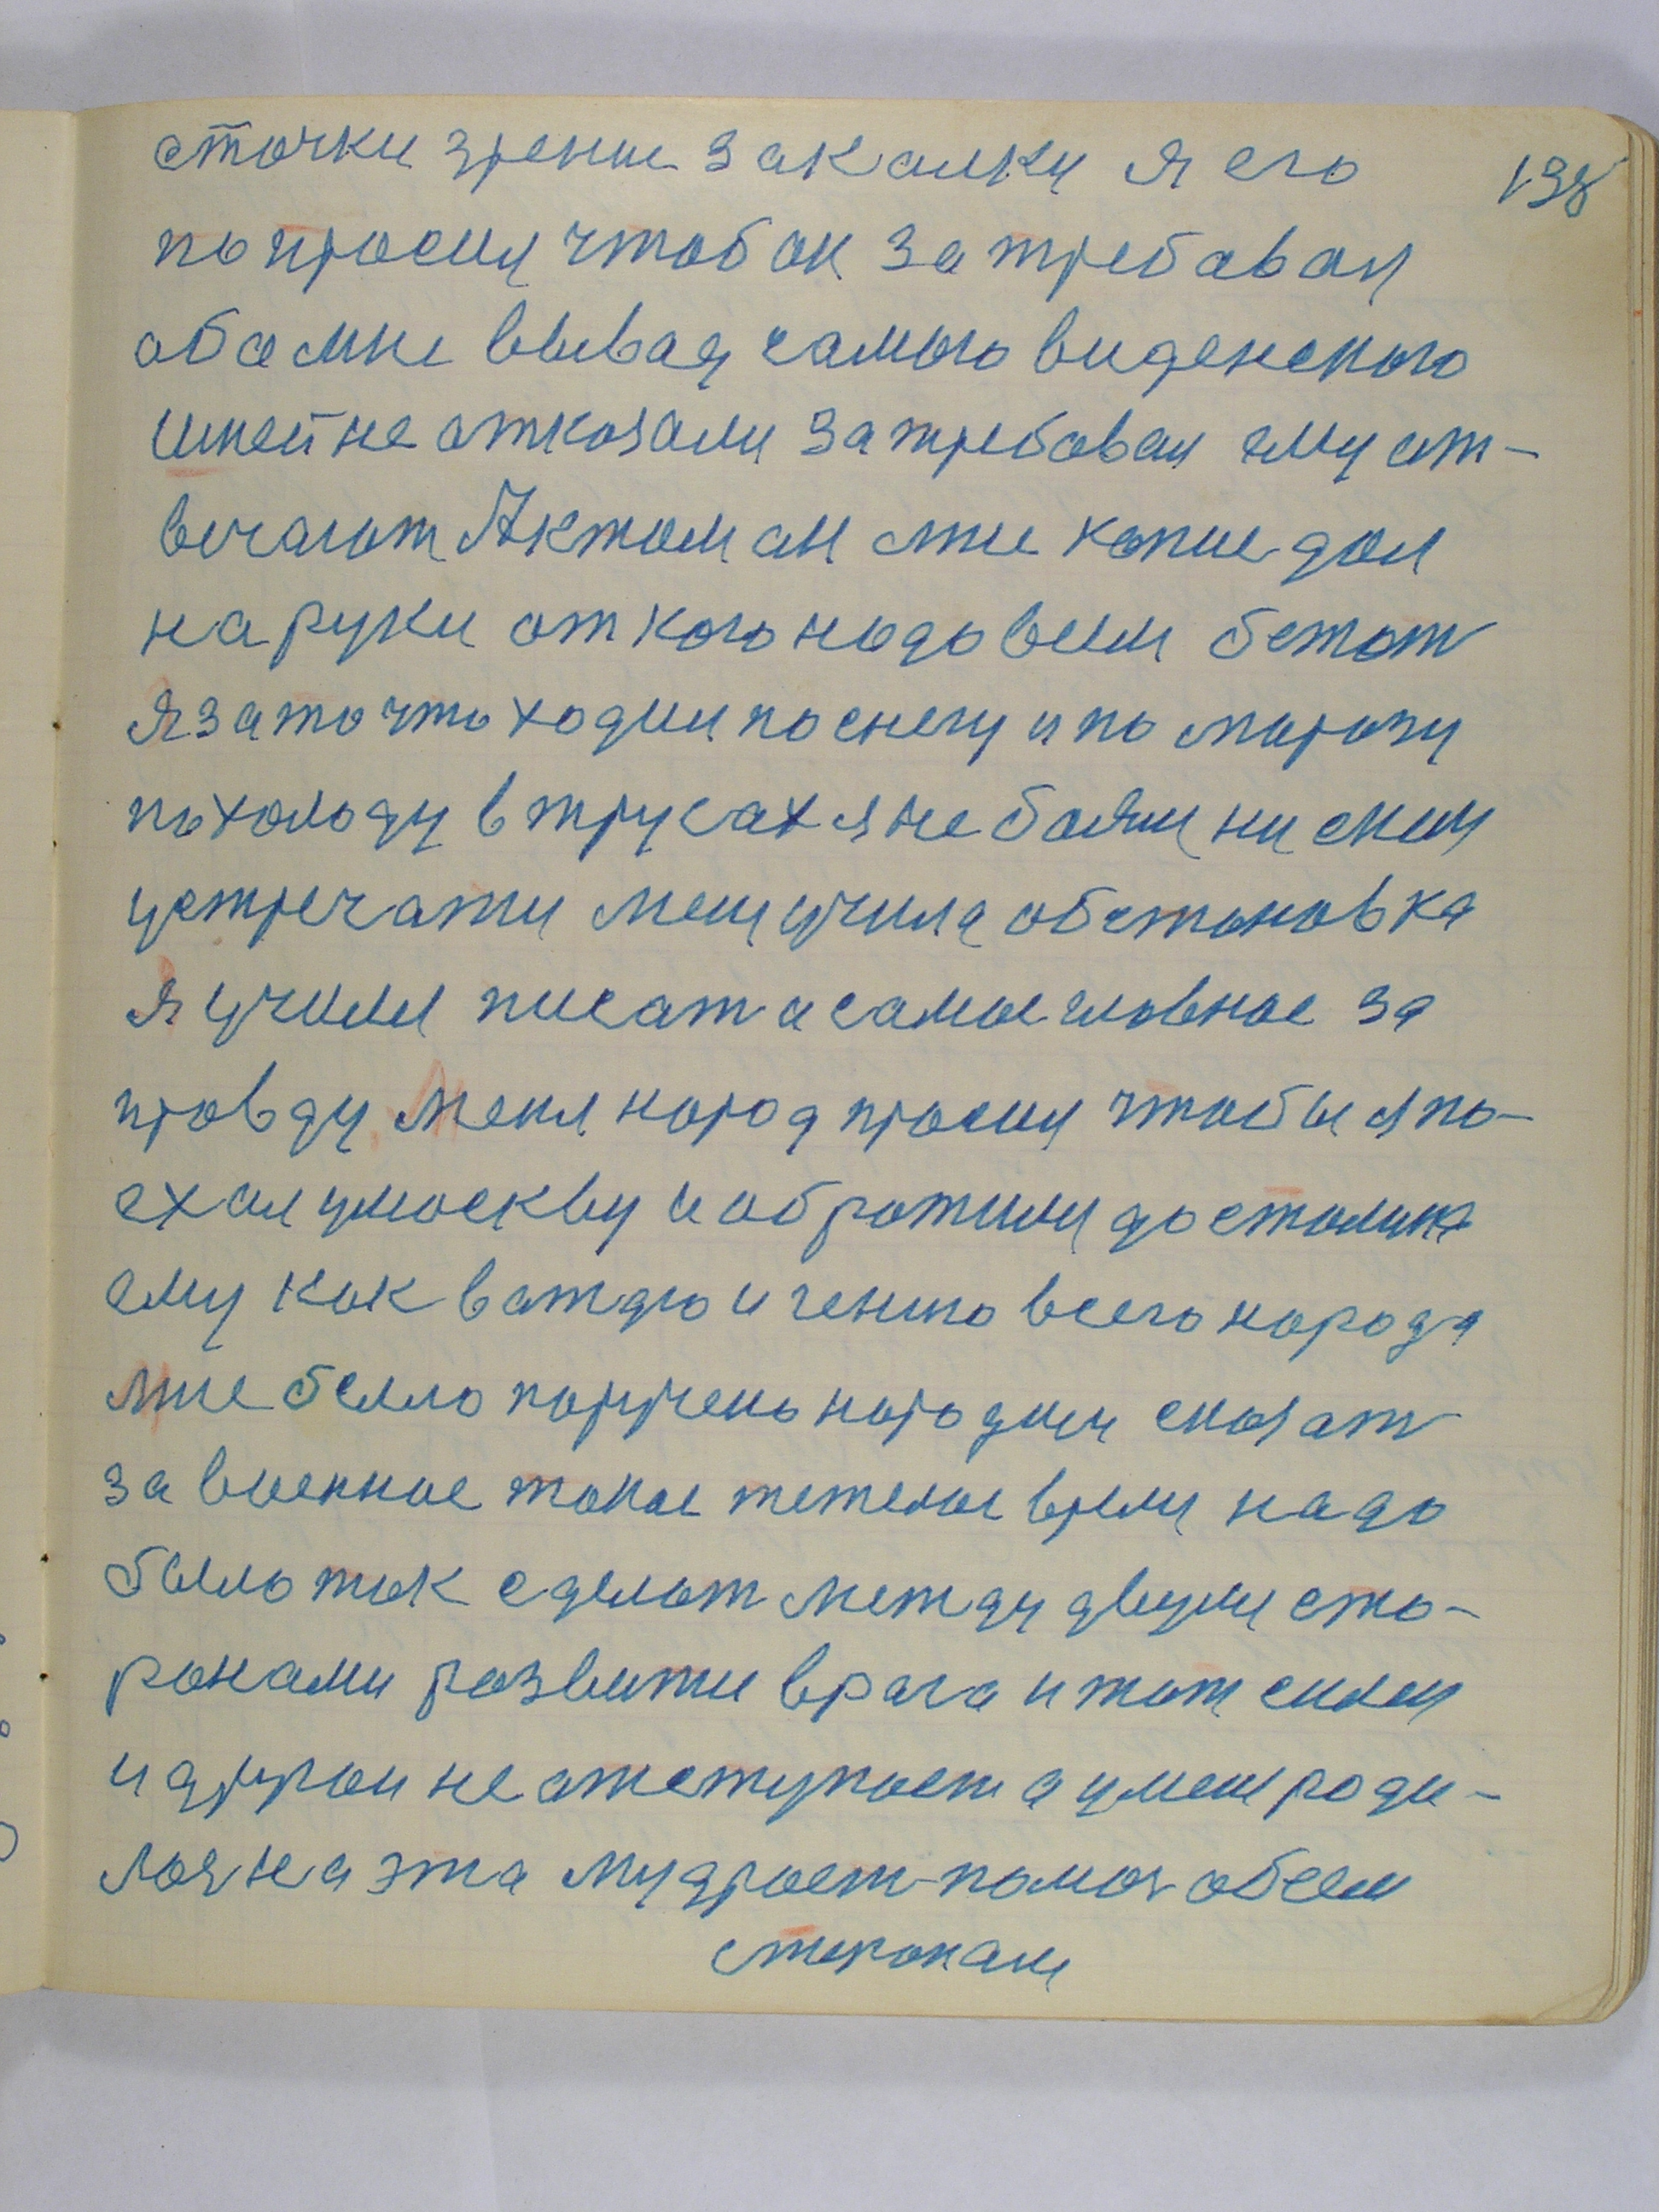 сточки зрение закалки я его
138
попросил чтоб он затребавал
обамне вывад самого виденского
имей не отказали затребовал ему от-
вечают Актом он мне копие дал
на руки от кого надо всем бетот
я зато что ходил поснегу и по морозу
похолоду в трусах я не боялся ни ским
устречати меня учила обстановка
я учился писат а самые главное за
правду меня народ просил чтобы я по-
ехал умоскву и обратился достолина
ему как важдю и гению всего народа
мне было поручено народом сказат
за военное такое тежелое время надо
было так сделат между двумя сто-
ронами развити врага и тот силен
и другой не отступает а умене роди-
лася эта мудрост помоч обеем
сторонам